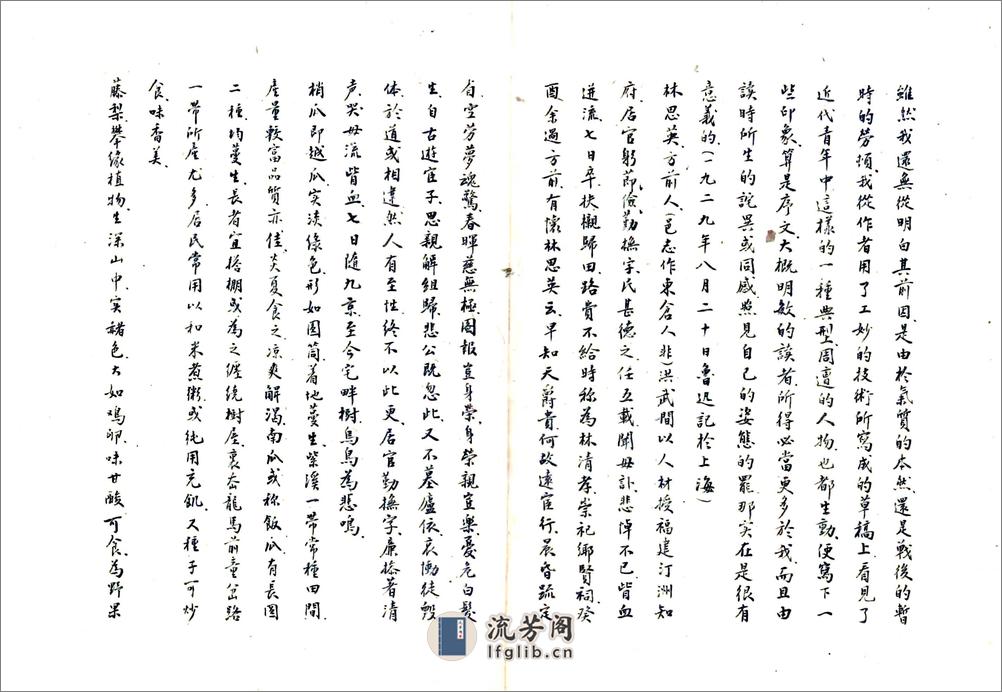 雖然我還無從明白其前因是由於氣質的本然還是戰後的暫
時的勞頓、我從作者用了工妙的技術所寫成的草稿上看見了
近代青年中這樣的一種典型周遭的人物也都生動、便寫下一
些印象算是序文、大概明敏的讀者所得必當更多於我、而且由
讀時所生的詫異或同感照見自己的姿態的罷那实在是很有
意義的（一九二九年八月二十日魯迅記於上海）
林思英、方前人、（邑志作東倉人非）洪武間以人材授福建汀洲知
府、居官躬節儉、勤撫字、氏甚德之、任五載、聞母訃、悲悼不已、皆血
迸流、七日卒、扶櫬歸田、路費不給、時称為林清孝崇祀鄉賢祠、癸
酉余過方前、有懷林思英云、早知天爵貴、何故遠宦行、晨昏疏定
省、空勞夢魂驚、春暉慈無極、图報豈身榮、身榮親宜樂、憂危白髮
生、自古遊宦子、思親解組歸、悲公既忽此、又不墓廬依、哀慟徒毀
体、於道或相違、然人有至性、終不以此更、居官勤撫字、廉撡著清
声、哭母流皆血、七日隨九京、至今宅畔樹、烏烏為悲鳴、
梢瓜即越瓜、实淡綠色、形如圆筒、着地蔓生、紫溪一帶常種田間、
產量較富、品質亦佳、炎夏食之、凉爽解渴、南瓜或称飯瓜、有長圆
二種、均蔓生、長者宜搭棚、或為之纏繞樹屋、裹岙龍馬前童岔路
一帶所產尤多、居民常用以和米煮粥、或純用充飢、又種子可炒
食、味香美、
藤梨、攀緣植物、生深山中、实褚色、大如鳮卵、味甘酸可食、為野果
流芳阁
lfglib.cn